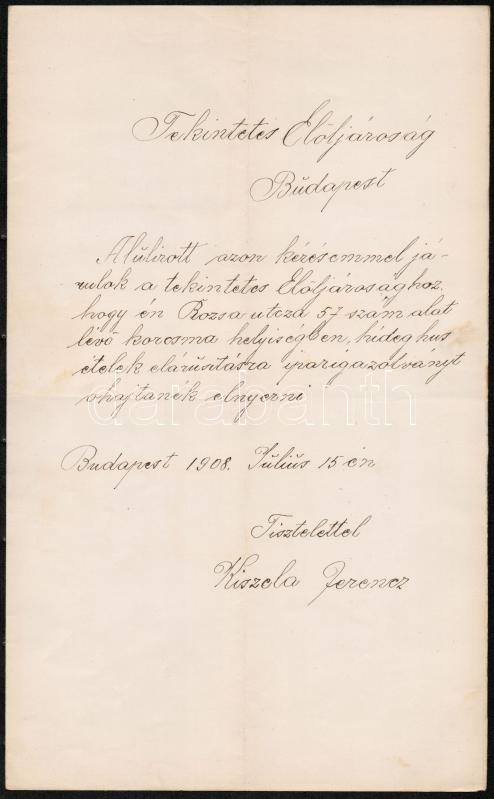 Tekintetes Elöljároság
Budapest
Alulirott azon kérésemmel já-
rulok a tekintetes Elöljárosághoz,
hogy én Rozsa utcza 57 szám alat
lévő korcsma helyiségben, hideg hus
ételek elárusitásra iparigazolványt
ohajtanék elnyerni
darabanth
Budapest 1908. Július 15 én
Tisztelettel
Kiszela Ferencz